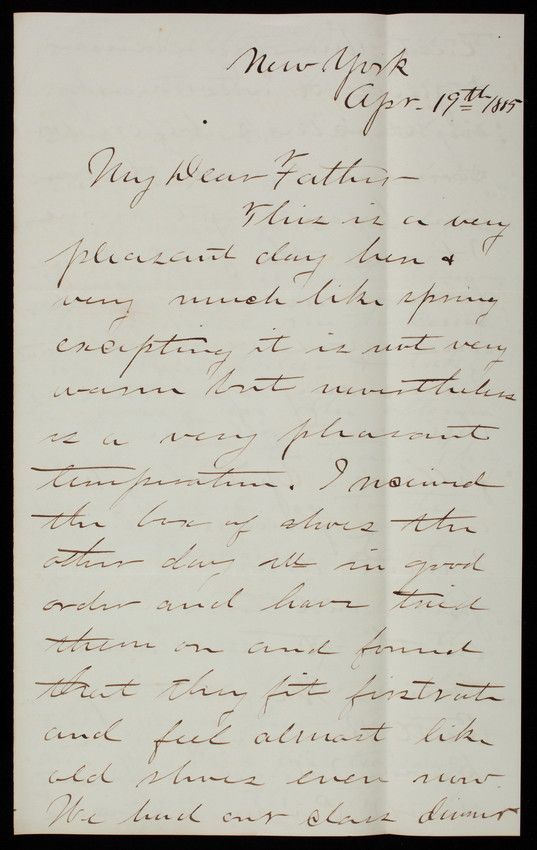 New York
Apr. 19th 1885
My Dear Father
This is a very
pleasant day here &
very much like spring
excepting it is not very
warm but nevertheless
is a very pleasant
temperature. I received
the box of shoes the
other day all in good
order and have tried
them on and found
that they fit firstrate
and feel almost like
old shoes even now.
We had our class dinner